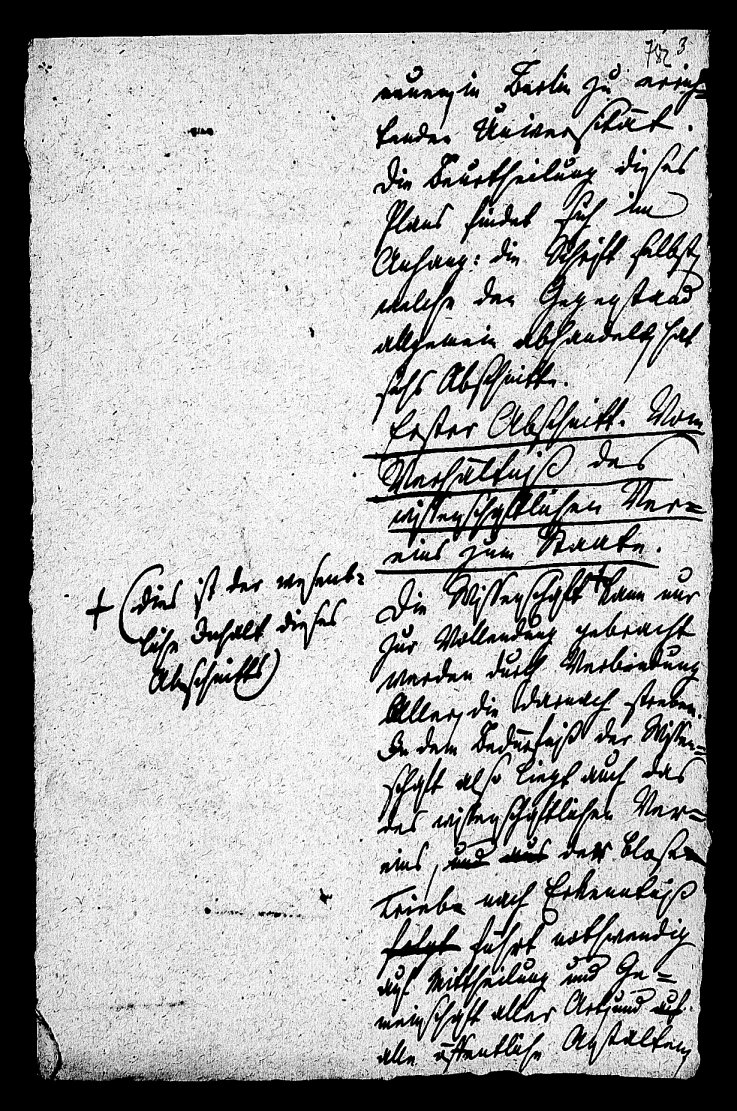 3
neuen in Berlin zu errich=
tenden Universität.
Die Beurtheilung dieses
Plans findet sich im
Anhang: die Schrift selbst,
welche den Gegenstand
allgemein abhandelt, hat
sechs Abschnitte.
Erster Abschnitt. Vom
Verhältniß des
wissenschaftlichen Ver=
eins zum Staate.
+ (dies ist der wesent=
liche Inhalt dieses
Abschnitts)
Die Wissenschaft + kann nur
zur Vollendung gebracht
werden durch Verbindung
Aller, die darnach streben.
In dem Bedürfniß der Wissen=
schaft also liegt auch das
des wissenschaftlichen Ver=
eins, und aus der bloße
Trieb nach Erkenntniß
folgt führt nothwendig
auf Mittheilung und Ge=
meinschaft aller Art, und auf
alle öffentliche Anstalten,